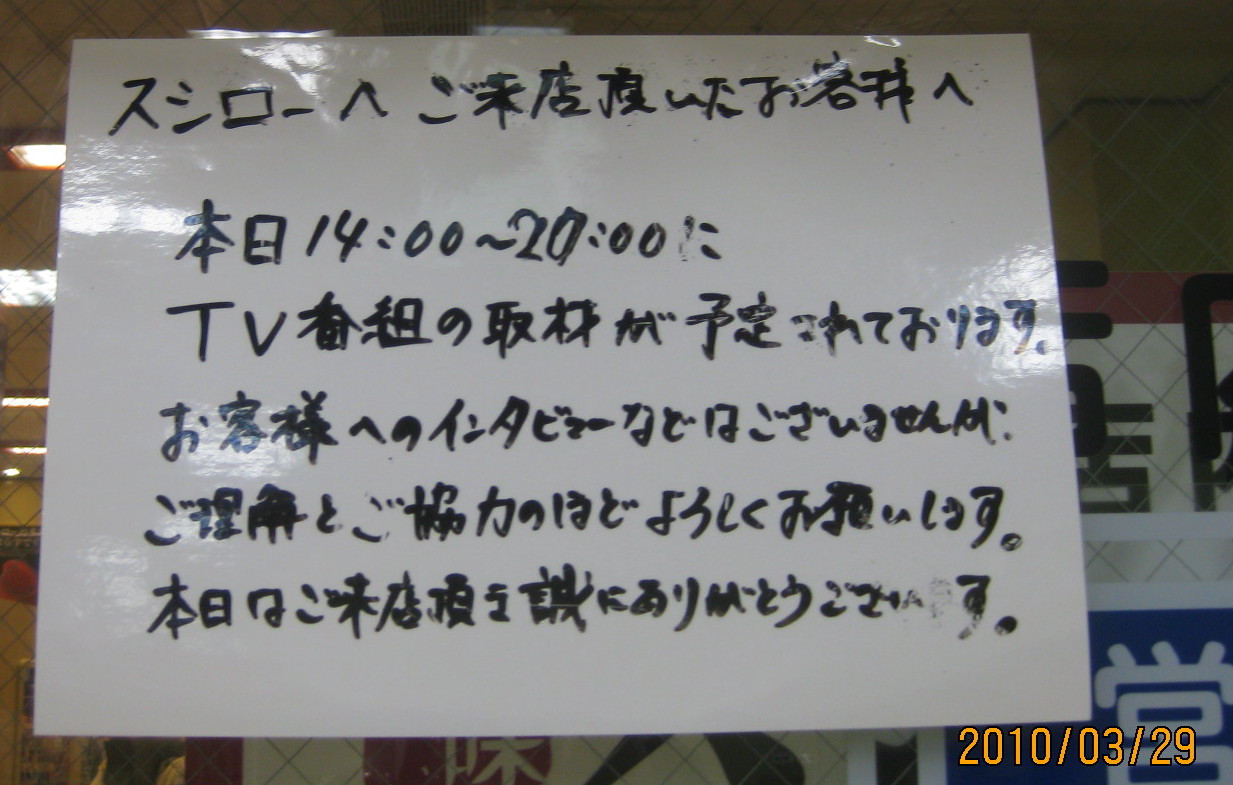 スシローへ ご来店頂いたお客様へ
本日14:00~20:00に
TV番組の取材が予定されております。
お客様へのインタビューなどはございませんが、
ご理解とご協力のほどよろしくお願いします。
本日はご来店頂き誠にありがとうございます。
営
味
2010/03/29